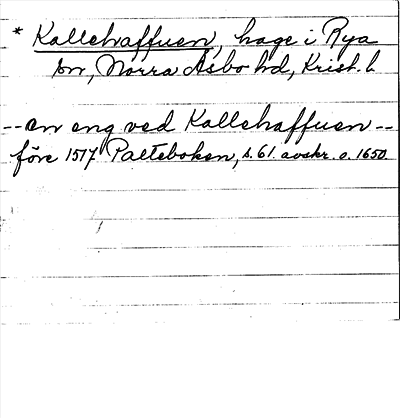 * Kallehaffuen, hage i Rya
sn, Norra Åsbo hd, Krist. l.
-- en eng ved Kallehaffuen --
före 1517 Palteboken, s. 61. avskr. c. 1650.